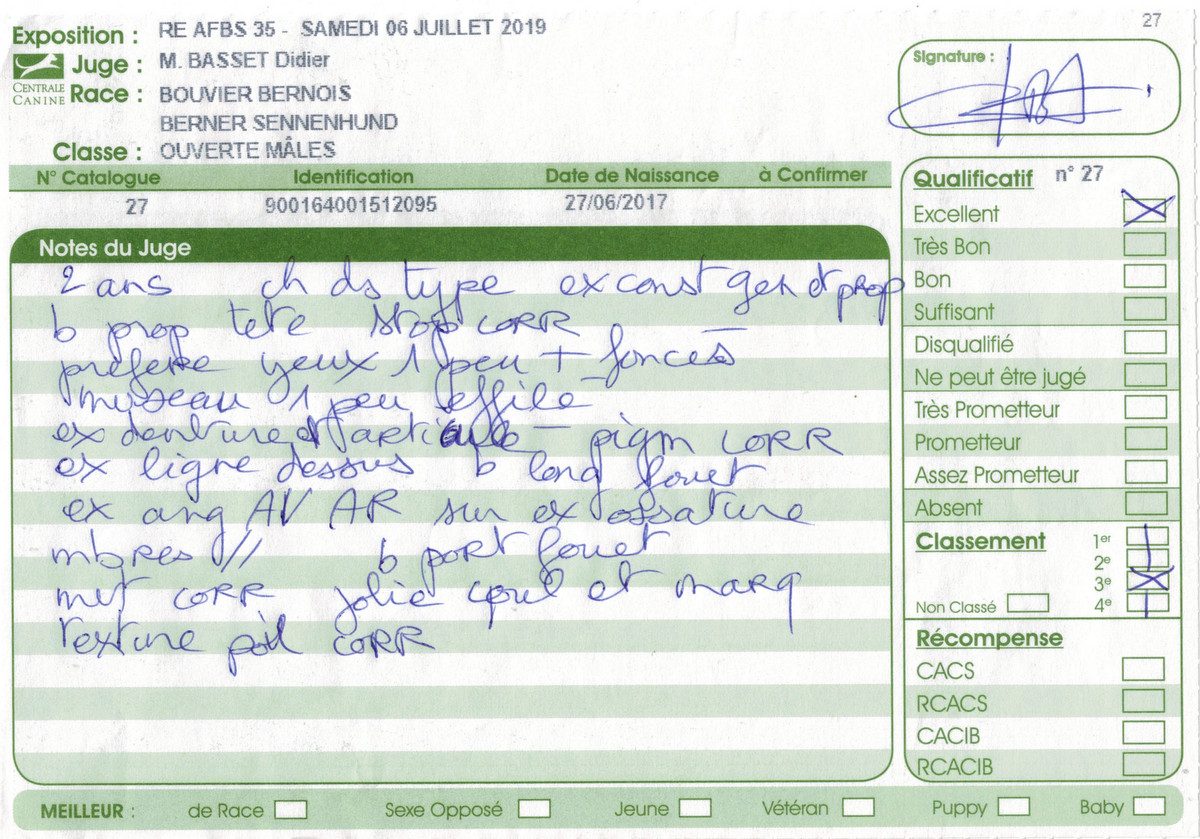 27
Exposition : RE AFBS 35 - SAMEDI 06 JUILLET 2019
Juge : M. BASSET Didier
CENTRALE CANINE
Race : BOUVIER BERNOIS
BERNER SENNENHUND
Classe : OUVERTE MÂLES
Signature :
N° Catalogue Identification Date de Naissance à Confirmer
27 900164001512095 27/06/2017
Notes du Juge
2 ans ch ds type ex const gen et prop
b prop tete stop CORR
prefere yeux 1 peu + foncés
museau 1 peu effilé
ex denture et articulé - pigm CORR
ex ligne dessus b long fouet
ex ang AV AR sur ex ossature
mbres // b port fouet
mvt CORR jolie coul et marq
Texture poil CORR
Qualificatif n° 27
Excellent
Très Bon
Bon
Suffisant
Disqualifié
Ne peut être jugé
Très Prometteur
Prometteur
Assez Prometteur
Absent
Classement 1er
2e
3e
Non Classé 4e
Récompense
CACS
RCACS
CACIB
RCACIB
MEILLEUR : de Race Sexe Opposé Jeune Vétéran Puppy Baby